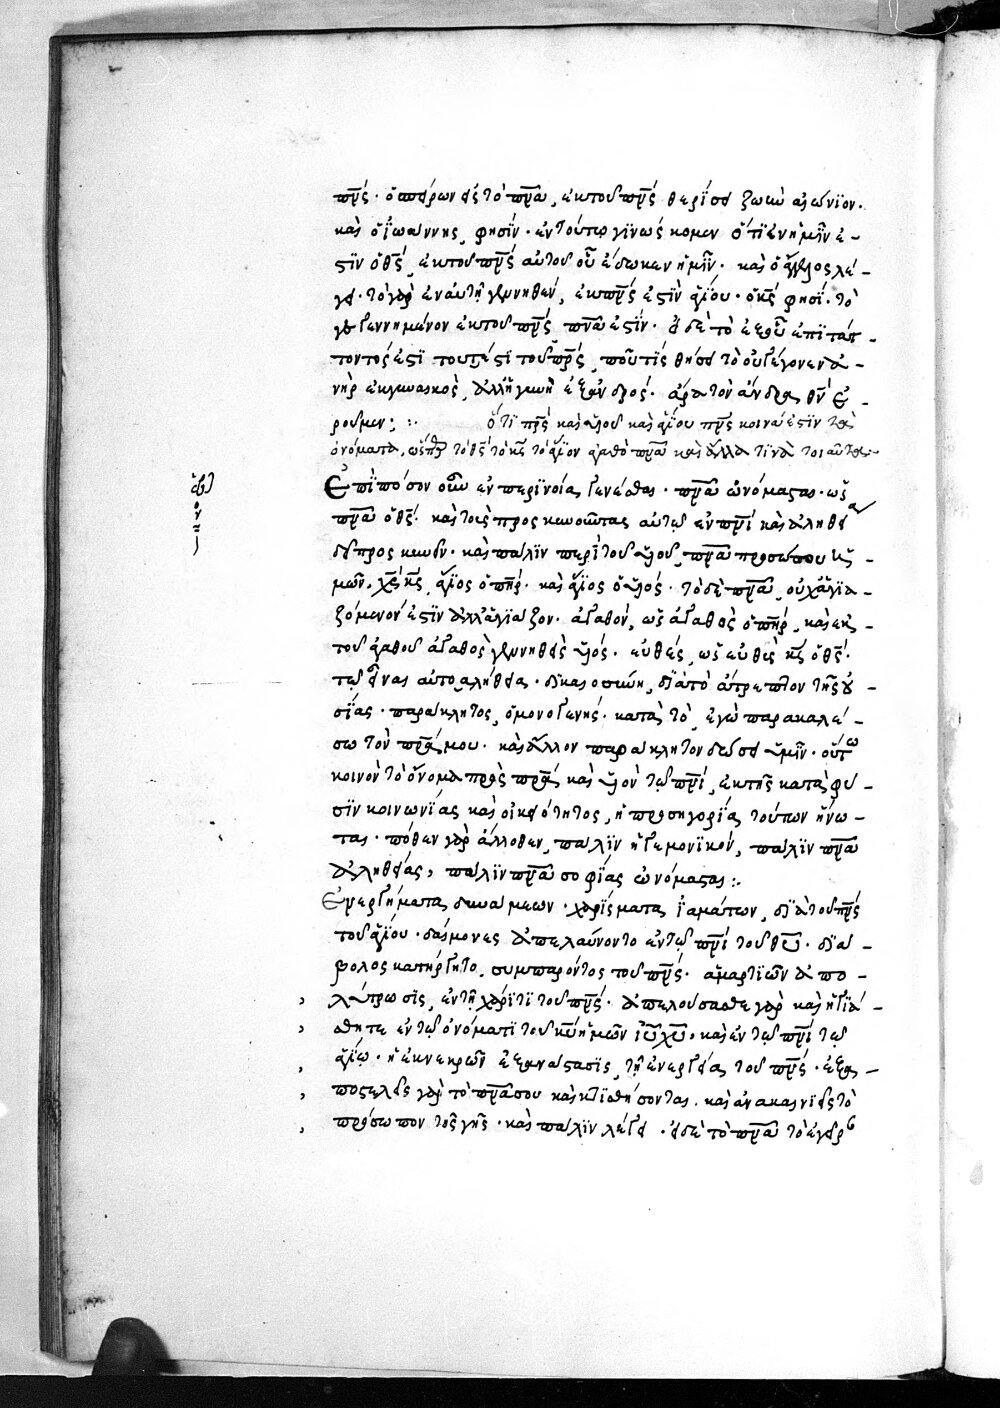 πν̅ς· ὁ σπείρων εἰς τὸ πν̅α, ἐκ τοῦ πν̅ς θερίσει ζωὴν αἰώνϊον.
καὶ ὁ ἰ̈ωάννης φησΐν· ἐν τούτω γϊνώσκομεν ὅτϊ ἐν ἡμῖν ἐ-
στϊν ὁ θς̅, ἐκ τοῦ πν̅ς αὐτοῦ οὗ ἔδωκεν ἡμῖν. καὶ ὁ ἄγγελος λέ-
γει· τὸ γὰρ ἐν αὐτῇ γεννηθὲν, ἐκ πν̅ς ἐστϊν ἁγΐου. ὁ κς̅ φησΐ· τὸ
γεγεννημένον ἐκ τοῦ πν̅ς πν̅α ἐστΐν. εἰ δὲ τὸ ἐκ θῦ ἐπϊτάτ-
τοντός ἐστϊ τουτέστϊ τοῦ πρ̅ς, ποῦ τις θήσει τὸ οὐ γέγονεν ἀ-
νὴρ ἐκ γυναικὸς, ἀλλὴ γυνὴ ἐξ ἀνδρός. ἆρα τὸν ἄνδρα θν̅ ἐ-
ροῦμεν; :· ὅτϊ πρ̅ς καὶ υἱοῦ καὶ ἁγΐου πν̅ς κοινά ἐστϊν τὰ
ὀνόματα, ὥσπερ τὸ θς̅ τὸ κς̅ τὸ ἅγϊον ἀγαθὸ πν̅α καὶ ἄλλα τϊνὰ τοιαῦτα:-
Ἐπϊπόσον οὖν ἐν περινοία γενέσθαι· πν̅α ὠνόμασται· ὡς
πν̅α ὁ θς̅· καὶ τοὺς προσκυνοῦντας αὐτῷ ἐν πν̅ϊ καὶ ἀληθεία
δεῖ προσκυνεῖν· καὶ πάλϊν περὶ τοῦ υἱοῦ, πν̅α προσώπου ἡ-
μῶν, χς̅ κς̅, ἅγιος ὁ πη̅ρ· καὶ ἅγϊος ὁ υἱός· τὸ δὲ πν̅α, οὐχ ἁγϊα-
ζόμενόν ἐστϊν ἀλλ' ἁγϊάζον. ἀγαθὸν, ὡς ἀγαθὸς ὁ πη̅ρ, καὶ ἐκ
τοῦ ἀγαθοῦ ἀγαθὸς γεννηθεὶς υἱός· εὐθὲς, ὡς εὐθὺς κς̅ ὁ θς̅·
τῷ εἶναι αὐτοαλήθεια· δϊκαιοσύνη, δϊὰ τὸ ἄτρεπτον τῆς οὐ-
σΐας· παράκλητος, ὁ μονογενής· κατὰ τὸ, ἐγὼ παρακαλέ-
σω τὸν πρ̅α μου· καὶ ἄλλον παράκλητον δώσει ὑμῖν· οὕτω
κοινὸν τὸ ὄνομα πρὸς πρ̅α καὶ υἱὸν τῷ πν̅ϊ, ἐκ τῆς κατὰ φύ-
σϊν κοινωνΐας καὶ οἰκειότητος, ἡ προσηγορΐα τούτων ἥνω-
ται· πόθεν γὰρ ἄλλοθεν, πάλϊν ἡγεμονϊκόν, πάλϊν πν̅α
ἀληθείας, πάλϊν πν̅α σοφΐας ὠνόμασται:·
Ἐνεργήματα δυνάμεων· χαρΐσματα ἰ̈αμάτων, δϊὰ τοῦ πν̅ς
τοῦ ἁγΐου· δαίμονες ἀπελαύνοντο ἐν τῷ πν̅ϊ τοῦ θυ̅· δϊά-
βολος κατήργητο, συμπαρόντος τοῦ πν̅ς· ἁμαρτϊῶν ἀπο-
λύτρωσϊς, ἐν τῇ χάρϊτϊ τοῦ πν̅ς· ἀπελούσασθε γὰρ καὶ ἡγϊά-
σθητε ἐν τῷ ὀνόματϊ τοῦ κυ̅ ἡμῶν ἰ̈υ̅ χυ̅, καὶ ἐν τῷ πν̅ϊ τῷ
ἁγΐω· ἡ ἐκ νεκρῶν ἐξανάστασϊς, τῇ ἐνεργεία τοῦ πν̅ς· ἐξα-
ποστελεῖς γὰρ τὸ πν̅α σου καὶ κτϊσθήσονται, καὶ ἀνακαινϊεῖς τὸ
πρόσωπον τῆς γῆς· καὶ πάλϊν λέγει· εἰ δὲ τὸ πν̅α τὸ ἐγεῖρ